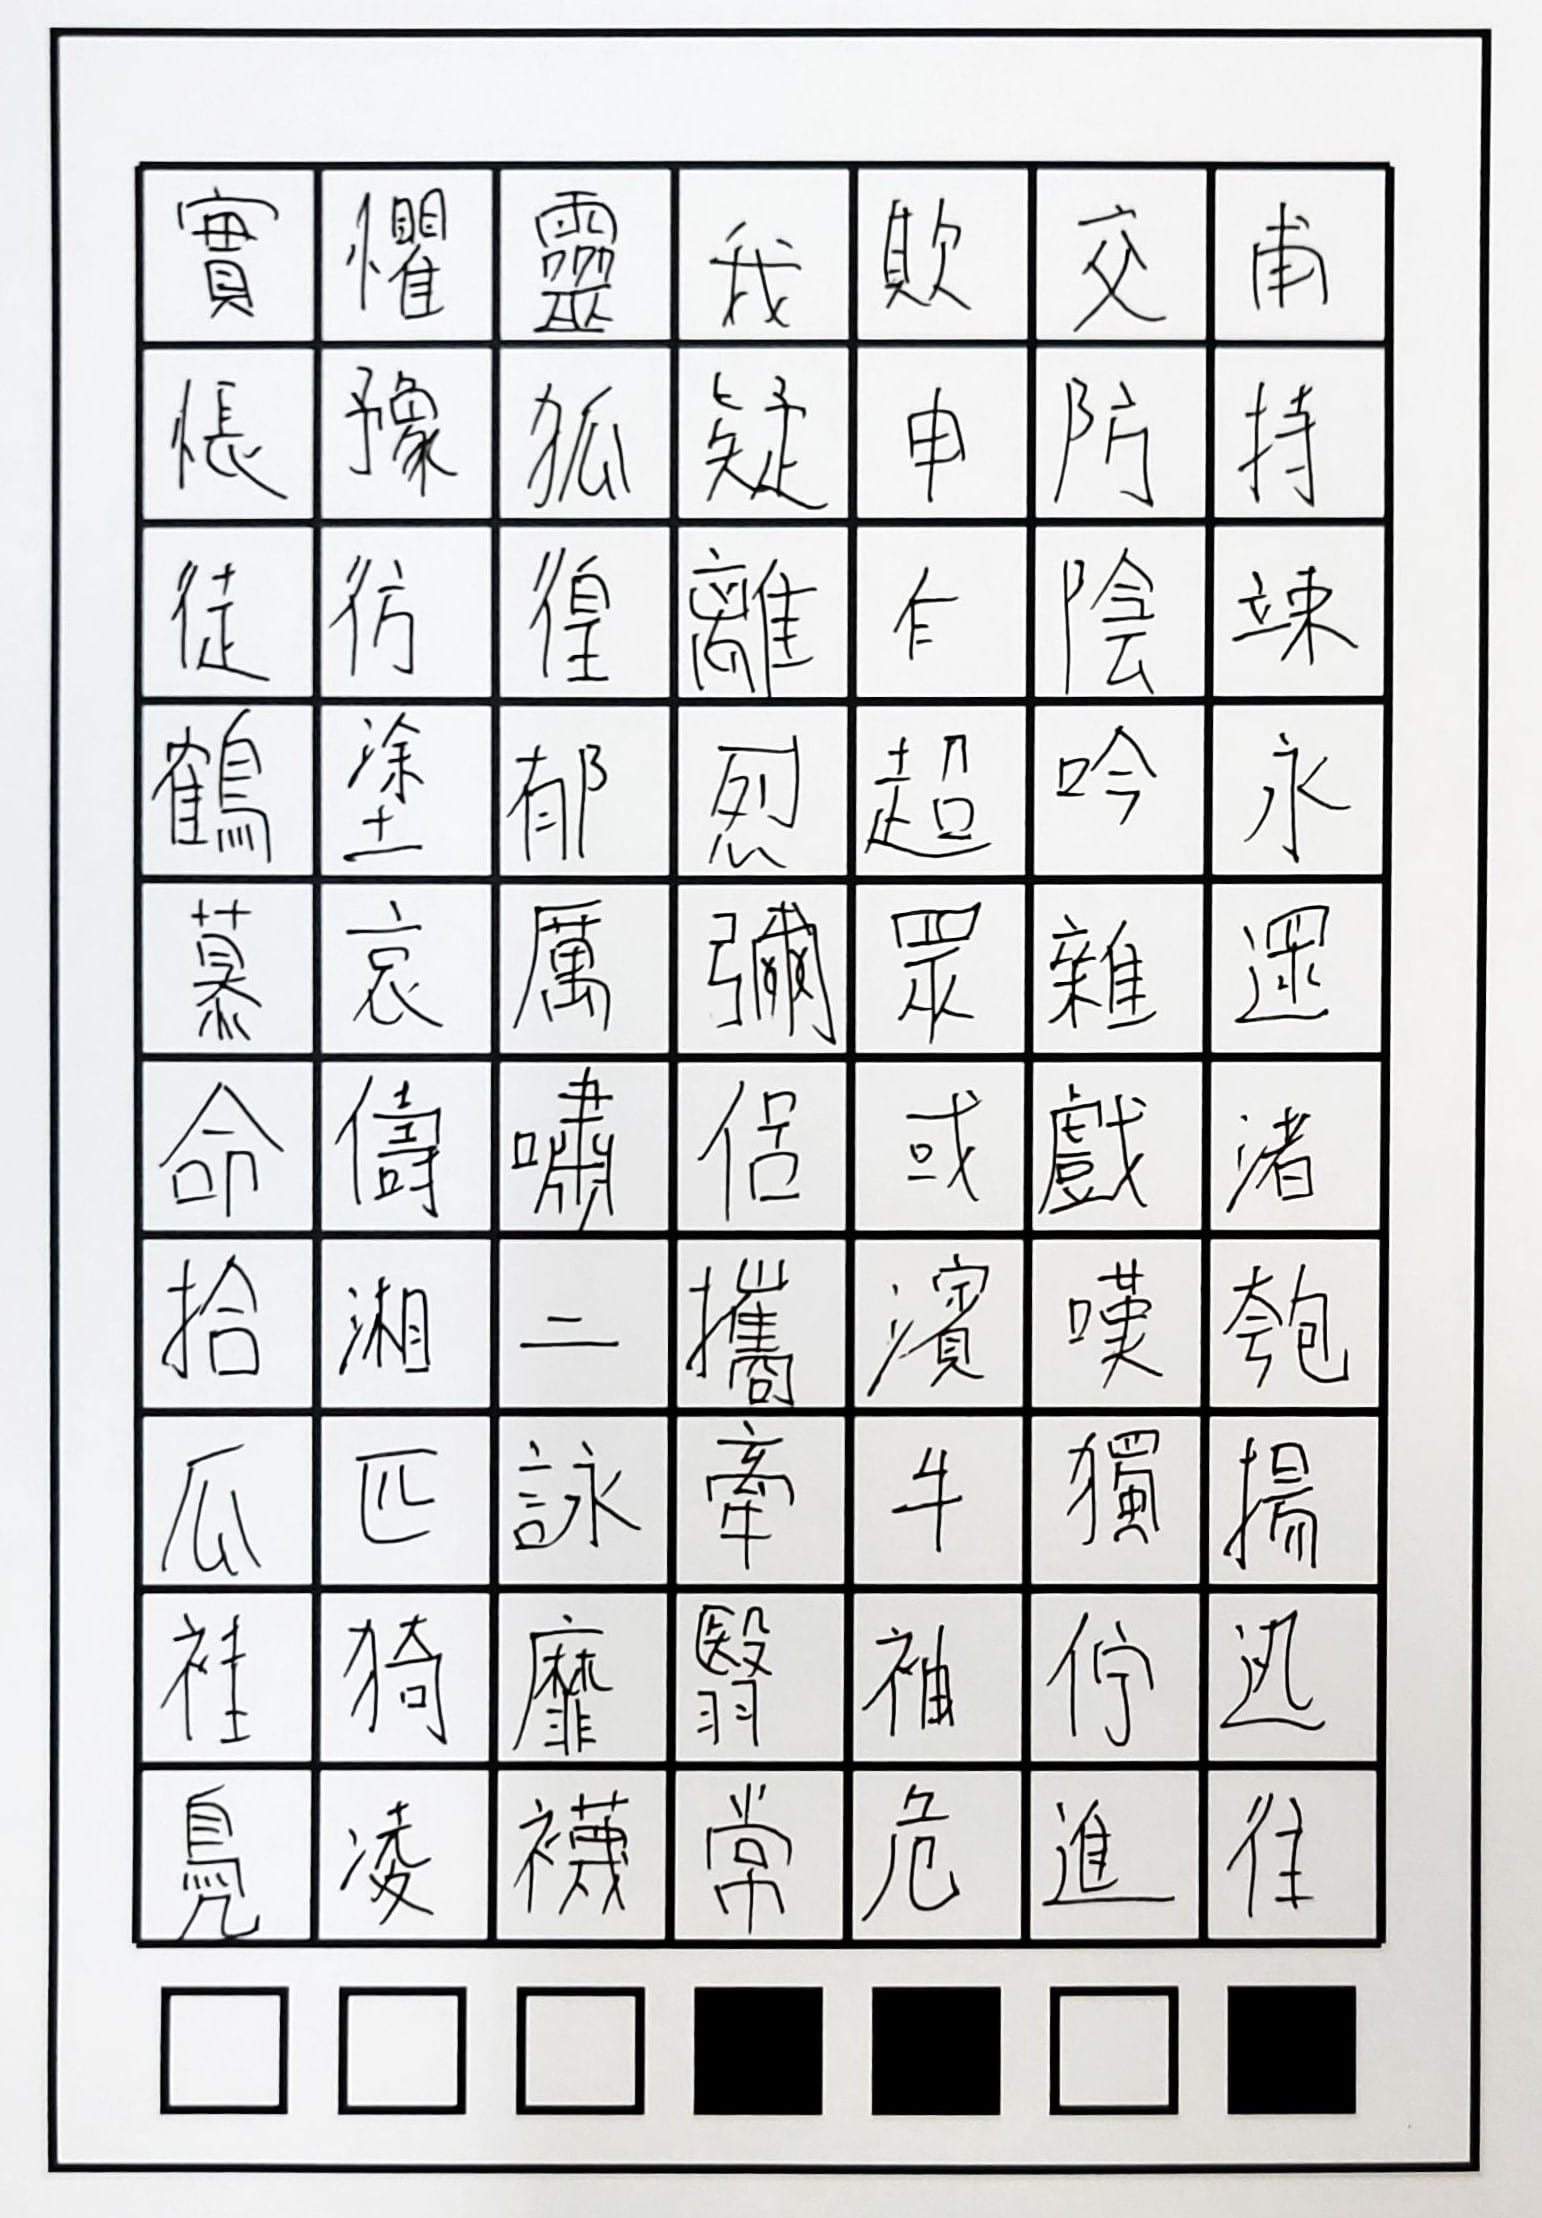 實懼靈我欺交甫
悵豫狐疑申防持
徒彷徨離乍陰竦
鶴塗郁烈超吟永
慕哀厲彌眾雜遝
命儔嘯侶或戲渚
拾湘二攜濱嘆匏
瓜匹詠牽牛獨揚
袿猗靡翳袖佇迅
鳧凌襪常危進往